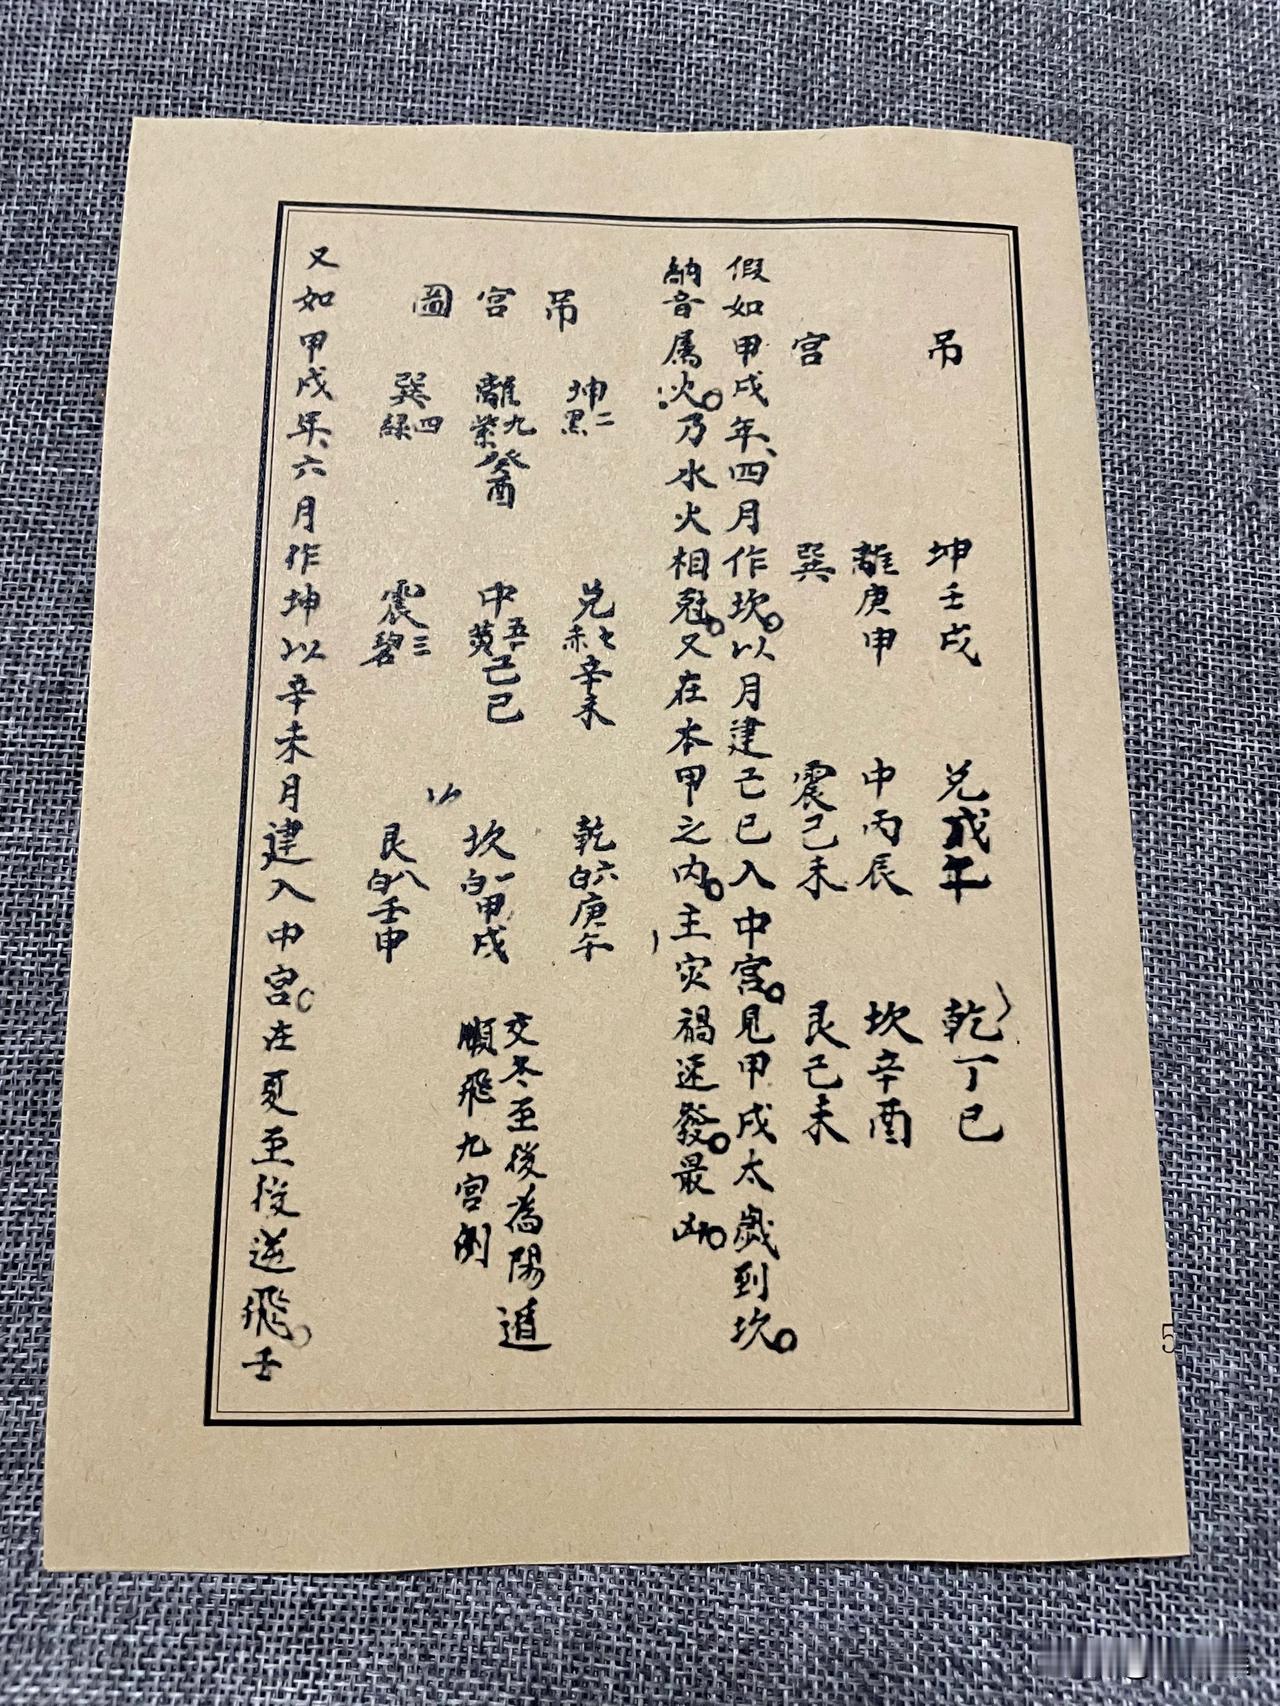 吊 坤壬戌 兑戊午 乾丁巳
離庚申 中丙辰 坎辛酉
宮 巽 震己未 艮己未
假如甲戌年、四月作坎。以月建己巳入中宮。見甲戌太歲到坎。
納音属火。乃水火相尅。又在本甲之内。主灾禍速發。最凶。
吊 坤二黑 兑七赤辛未 乾六白庚午
宮 離九紫癸酉 中五黄己巳 坎一白甲戌 交冬至後為陽遁
順飛九宮例
圖 巽四緑 震三碧 艮八白壬申
又如甲戌年、六月作坤以辛未月建入中宮。在夏至後逆飛。壬
5